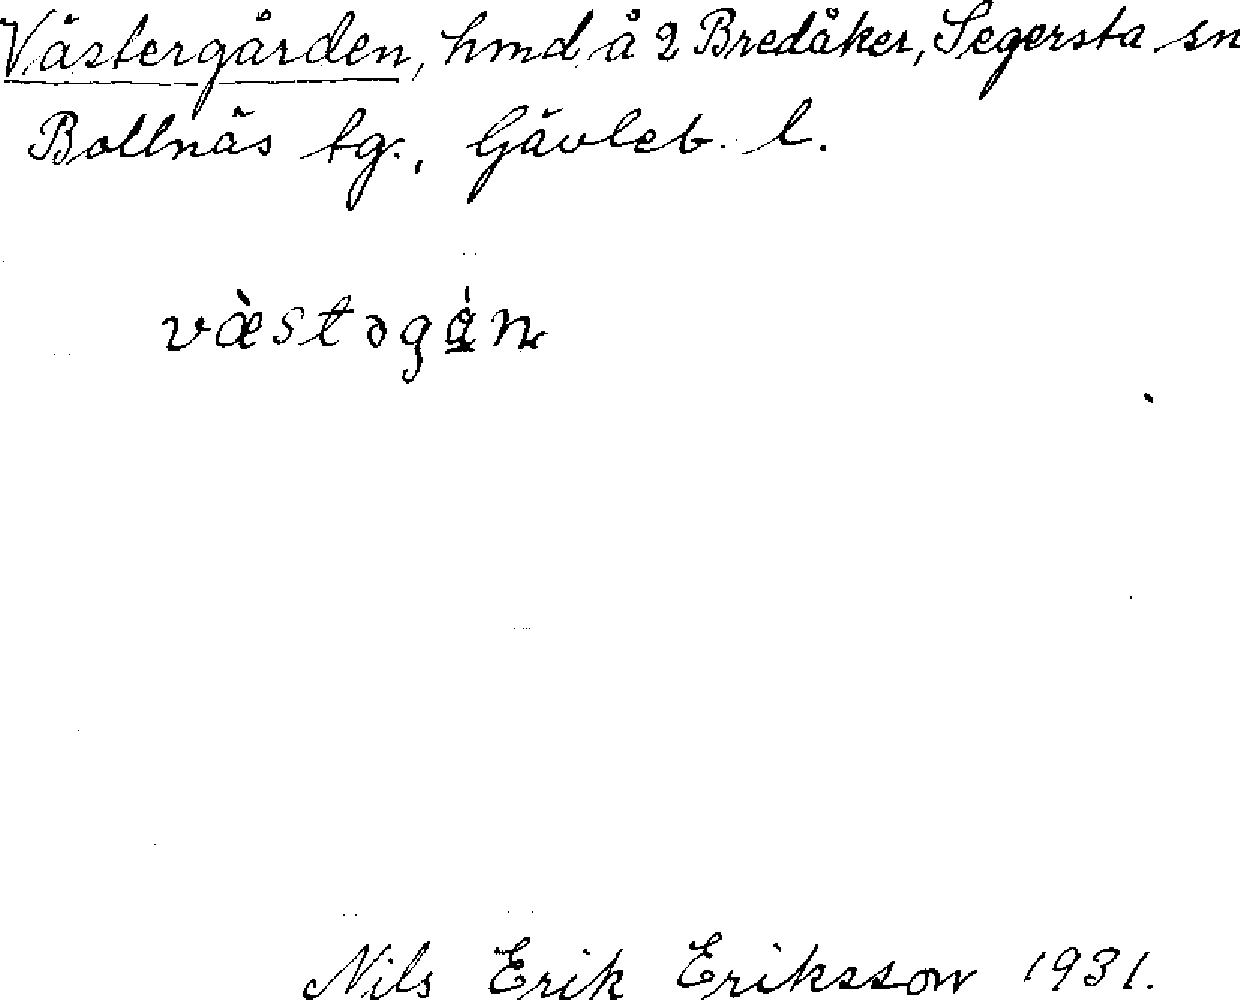 Västergården, hmd å 2 Bredåker, Segersta sn
Bollnäs tg., Gävleb. l.
væ̀stəgạ̊́n
Nils Erik Eriksson 1931.